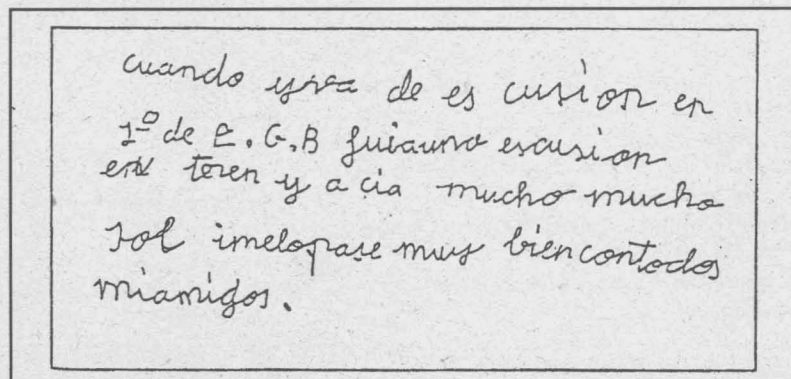 cuando yva de es cusion en
1º de E.G.B fuiauno escusion
en teren y a cia mucho mucho
sol imelopase muy biencontodos
miamigos.